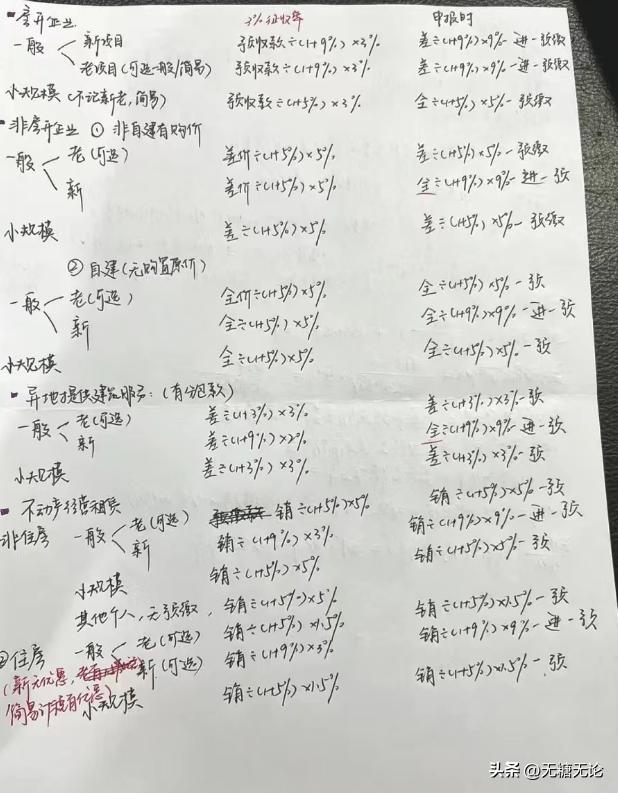 房开企业 3%征收率 申报时
一般 新项目 预收款÷(1+9%)×3% 差÷(1+9%)×9%-进-预缴
老项目(可选一般/简易) 预收款÷(1+9%)×3% 差÷(1+9%)×9%-进-预缴
小规模(不论新老,简易) 预收款÷(1+5%)×3% 全÷(1+5%)×5%-预缴
非房开企业 ① 非自建有购价
一般 老(可选) 差价÷(1+5%)×5% 差÷(1+5%)×5%-预缴
新 差价÷(1+5%)×5% 全÷(1+9%)×9%-进-预
小规模 差÷(1+5%)×5% 差÷(1+5%)×5%-预缴
② 自建(无购置原价)
一般 老(可选) 全价÷(1+5%)×5% 全÷(1+5%)×5%-预
新 全÷(1+5%)×5% 全÷(1+9%)×9%-进-预
小规模 全÷(1+5%)×5% 全÷(1+5%)×5%-预
异地提供建筑服务:(有分包款)
一般 老(可选) 差÷(1+3%)×3% 差÷(1+3%)×3%-预
新 差÷(1+9%)×2% 全÷(1+9%)×9%-进-预
小规模 差÷(1+3%)×3% 差÷(1+3%)×3%-预
不动产经营租赁
非住房 一般 老(可选) 销÷(1+5%)×5% 销÷(1+5%)×5%-预
新 销÷(1+9%)×3% 销÷(1+9%)×9%-进-预
小规模 销÷(1+5%)×5% 销÷(1+5%)×5%-预
其他个人,无预缴, 销÷(1+5%)×5%
②住房 一般 老(可选) 销÷(1+5%)×1.5% 销÷(1+5%)×1.5%-预
新(可选) 销÷(1+9%)×3% 销÷(1+9%)×9%-进-预
(新无优惠,
简易计税有优惠)
小规模 销÷(1+5%)×1.5% 销÷(1+5%)×1.5%-预
头条 @无糖无论